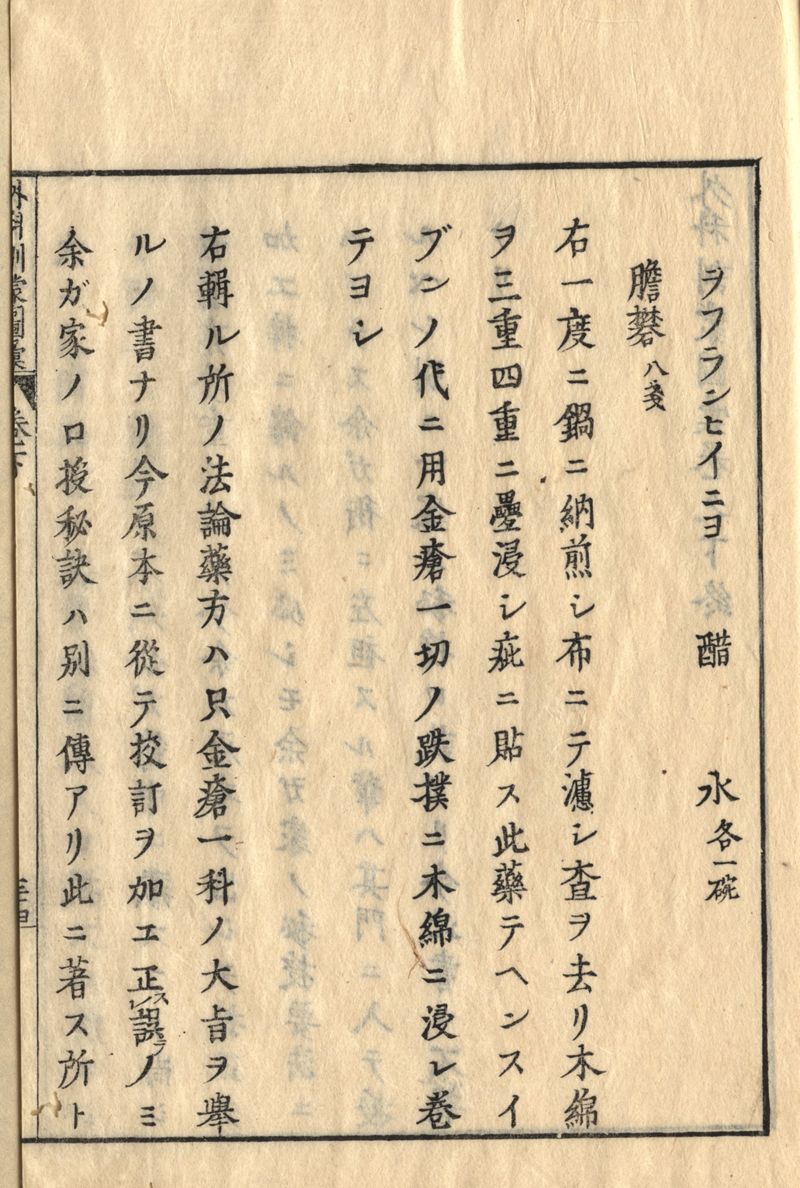 ヲフランヒイニヨ 醋 水各一碗
膽礬八戔
右一度ニ鍋ニ納煎シ布ニテ濾シ査ヲ去リ木綿
ヲ三重四重ニ疊浸シ疵ニ貼ス此藥テヘンスイ
ブンノ代ニ用金瘡一切ノ跌撲ニ木綿ニ浸シ巻
テヨシ
右輯ル所ノ法論藥方ハ只金瘡一科ノ大旨ヲ擧
ルノ書ナリ今原本ニ從テ挍訂ヲ加エ正スレ誤ヲノミ
余ガ家ノ口授秘訣ハ別ニ傳アリ此ニ著ス所ト